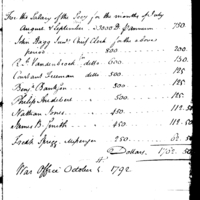 For the Salary of the Secy for the months of July
August & September @ 3000 D P annum 750
John Stagg Junr Chief Clerk for the above
period 800 200.
R. J. Vandenbroek ditto 600. 150
Constant Freeman ditto 500. 125
Benj Bankson ditto 500. 125
Philip Audebert 500. 125
Nathan Jones 450. 112.50
James B Smith 450. 112.50
Joseph Spegg Messenger 250 62.50
Dollars. 1762.50
War Office October 1792